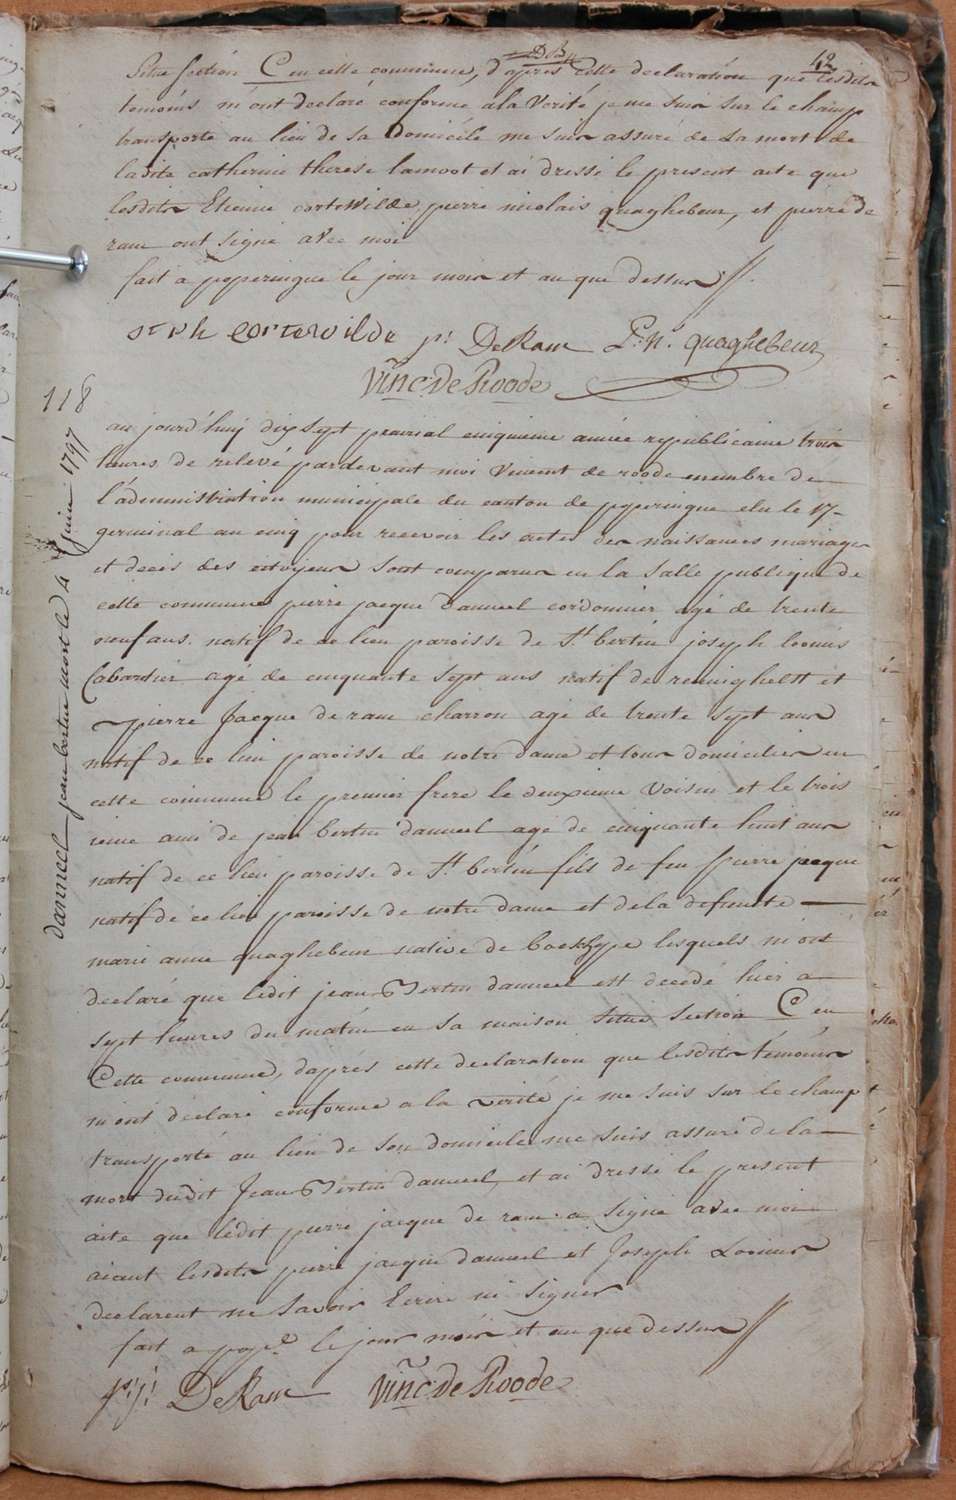 42
DB
Sitie section C en cette commune, d'apres cette declaration que lesdits
temoins m'ont declaré conforme a la verité je me suis sur le champ
transporté au lieu de sa domicile me suis assuré de la mort de
ladite catherine therese lamoot et ai dressé le present acte que
lesdits Etienne cortewilde pierre nicolais quaghebeur, et pierre de
ram ont signe avec moi
fait a poperingue le jour mois et an que dessus //.
st ph cortewilde p: j: DeRam P: N: quaghebeur
Vinc: De Roode
118
danneel jean bertin mort le 4 juin 1797
au jourd'huij dix sept prairial cinquieme année republicaine trois
heures de relevé pardevant moi Vincent de roode membre de
l'administration municipale du canton de poperingue elu le 17
germinal an cinq pour recevoir les actes des naissances mariages
et deces des citoyens sont comparus en la salle publique de
cette commune pierre jacque danneel cordonnier agé de trente
neuf ans natif de ce lieu paroisse de St bertin joseph loonis
Cabartier agé de cinquante sept ans natif de reninghelst et
pierre Jacque de ram charron agé de trente sept ans
natif de ce lieu paroisse de notre dame et tous domicilies en
cette commune le premier frere le deuxieme voisin et le trois
ieme ami de jean bertin danneel agé de cinquante huit ans
natif de ce lieu paroisse de St bertin fils de feu pierre jacque
natif de ce lieu paroisse de notre dame et dela defuncte
marie anne quaghebeur native de boeschepe lesquels m'ont
declaré que ledit jean Bertin danneel est decedé hier a
sept heures du matin en sa maison Sitiée section C en
Cette commune, d'aprés cette declaration que lesdits témoins
m'ont declaré conforme a la verité je me suis sur le champ
transporté au lieu de son domicile me suis assuré de la
mort dudit Jean Bertin danneel, et ai dressé le present
acte que ledit pierre jacque de ram a signe avec moi
aiant lesdits pierre jacque danneel et Joseph Loonis
declarent ne savoir Ecrire ni signer
fait a pop.e le jour mois et an que dessus //
p: j: DeRam Vinc: De Roode